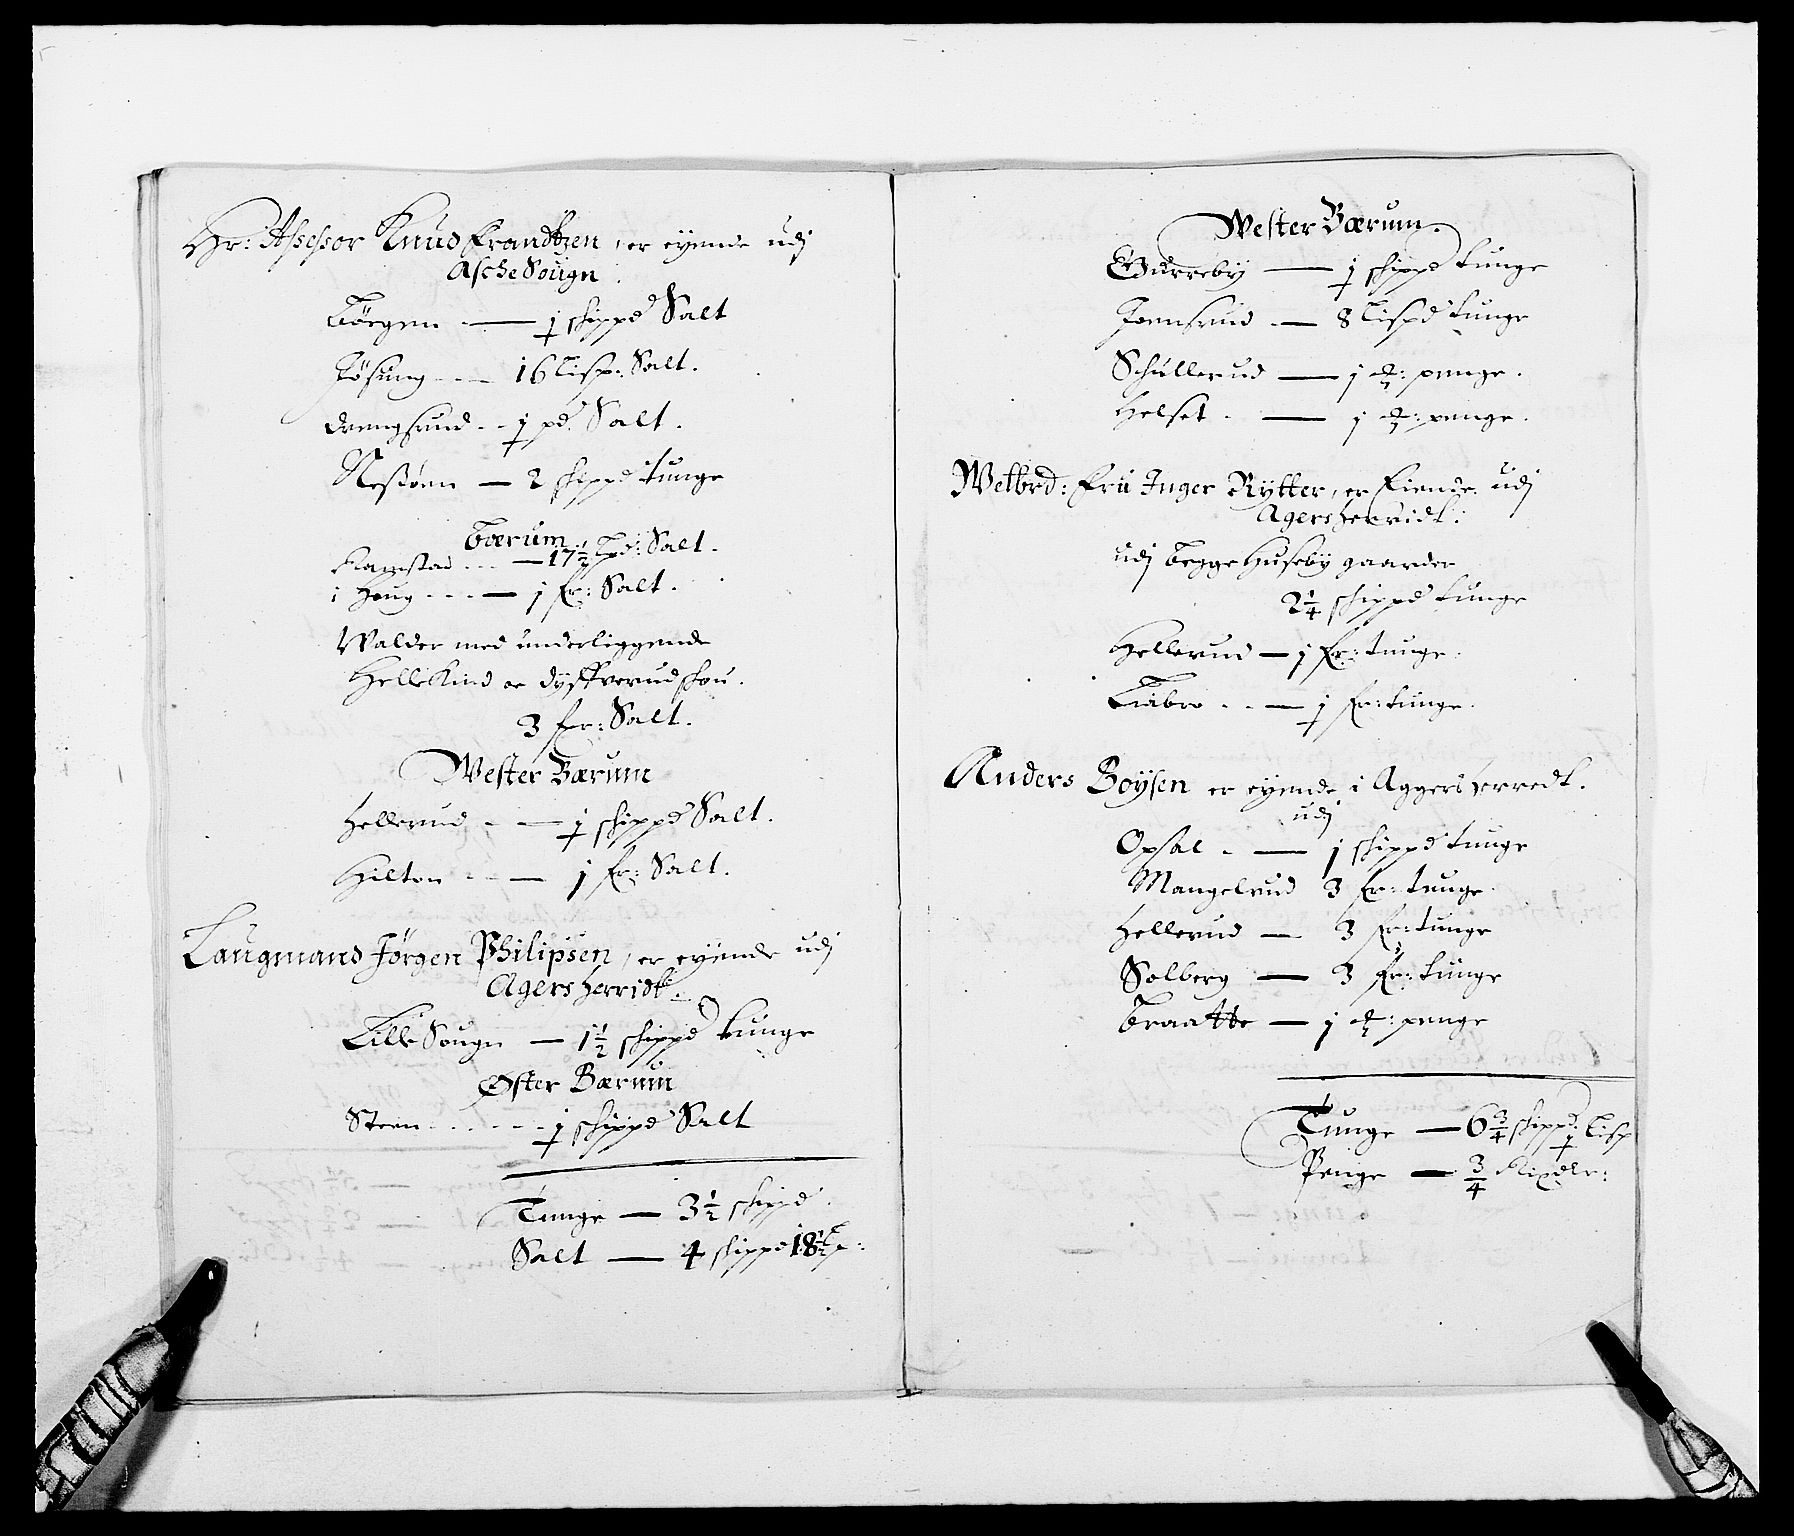 Hr: Assessor Knud Frandtzen, er eyende udj
Asche Sougn.
Börgen — 1 schippd Salt
Jösung — 16 Lisp: Salt.
drengsrud — 1 pd. Salt.
Nessöen — 2 schippd tunge
Bærum.
Ramstad — 17½ Lpd: Salt.
i Houg — 1 fr: Salt.
Walder med underliggende
HelleKind oc dyffverudschou.
3 fr: Salt.
Wester Bærum
Hellerud — 1 schippd Salt.
Hilton — 1 fr: Salt.
Laugmand Jørgen Philipsen, er eyende udj
Agers herridt.
Lille Sougn — 1½ schippd tunge
Øster Bærum
Steen — 1 schippd Salt
Tunge — 3½ schippd.
Salt — 4 schippd 18½ Lp:
Wester Bærum.
Burreby — 1 schippd tunge
Joensrud — 8 Lispd tunge
Schullerud — 1 ꝺ: penge.
Helset — 1 ꝺ: penge.
Welbrd: Frü Inger Rytter, er Eiende udj
Agers herridt.
udj begge Huseby gaarder
2¼ schippd tunge
Hellerud — 1 fr: tunge.
Liabro — 1 fr: tunge.
Anders Boysen er eyende i Aggers herredt.
udj
Opsal — 1 schippd tunge
Mangelrud 3 fr: tunge.
Hellerud — 3 fr: tunge
Solberg — 3 fr: tunge
Braatte — 1 ꝺ: penge
Tunge — 6¾ schippd. 1 Lisp
Penge — ¾ Rixdlr: